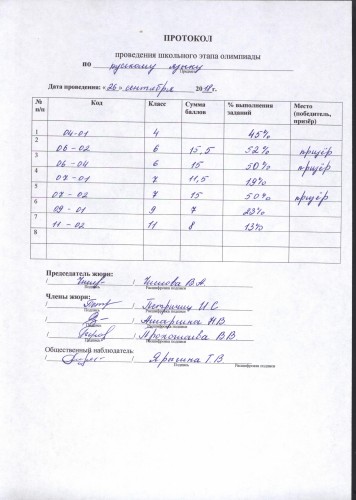 ПРОТОКОЛ
проведения школьного этапа олимпиады
по русскому языку
Предмет
Дата проведения: «26» сентября 2018 г.
№ п/п Код Класс Сумма баллов % выполнения заданий Место (победитель, призёр)
1 04-01 4 45%
2 06-02 6 15,5 52% призёр
3 06-04 6 15 50% призёр
4 07-01 7 11,5 19%
5 07-02 7 15 50% призёр
6 09-01 9 7 23%
7 11-02 11 8 13%
8
Председатель жюри:
В.Н.
Подпись Расшифровка подписи
Члены жюри:
Петричиц И.С.
Подпись Расшифровка подписи
Н.В.
Подпись Расшифровка подписи
В.В.
Подпись Расшифровка подписи
Общественный наблюдатель
Ярыгина Т.В.
Подпись Расшифровка подписи